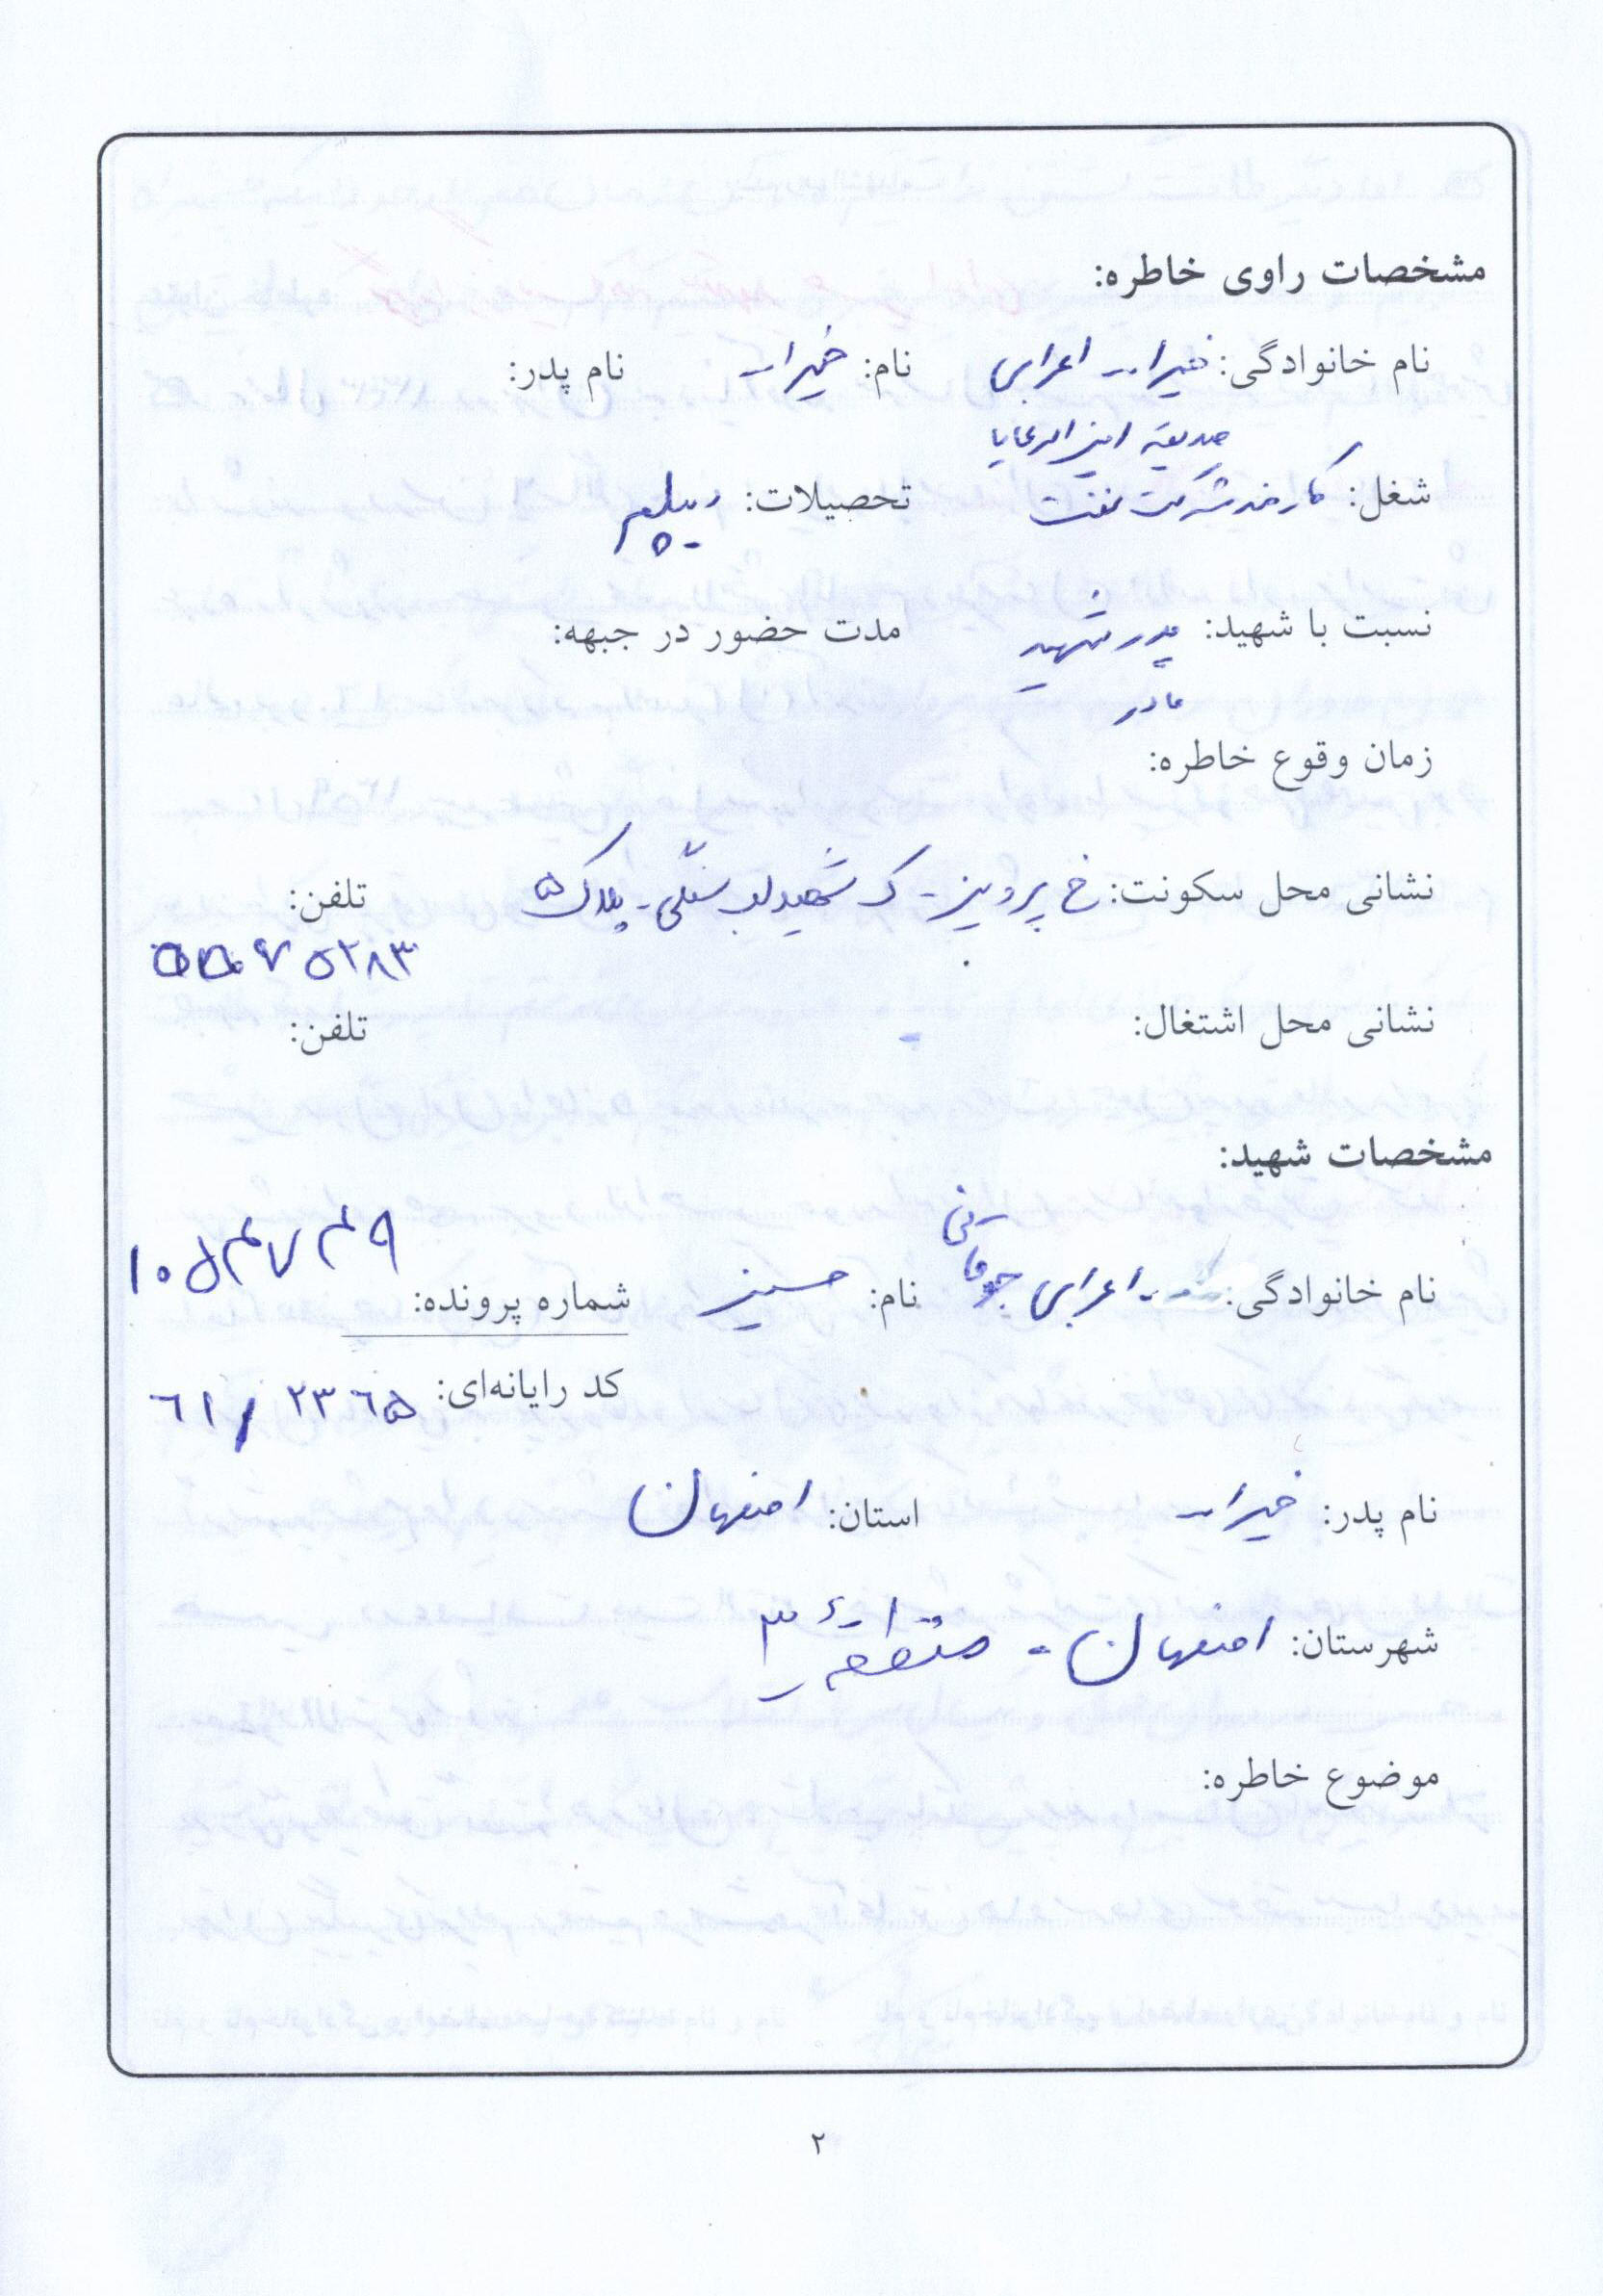 مشخصات راوی خاطره:
نام خانوادگی: خیرات اعرابی نام: خیرات نام پدر:
صدیقه امیر الرعایا
شغل: کارمند شرکت نفت تحصیلات: دیپلم
نسبت با شهید: پدر شهید مدت حضور در جبهه:
مادر
زمان وقوع خاطره:
نشانی محل سکونت: خ پروین - ک شهید پلاک ۵ تلفن:
نشانی محل اشتغال: تلفن:
مشخصات شهید:
نام خانوادگی: اعرابی جوقانی نام: حسین شماره پرونده:
کد رایانه‌ای: ۶۱/۲۳۶۵
نام پدر: خیرات استان: اصفهان
شهرستان: اصفهان - منطقه ۳
موضوع خاطره:
۲